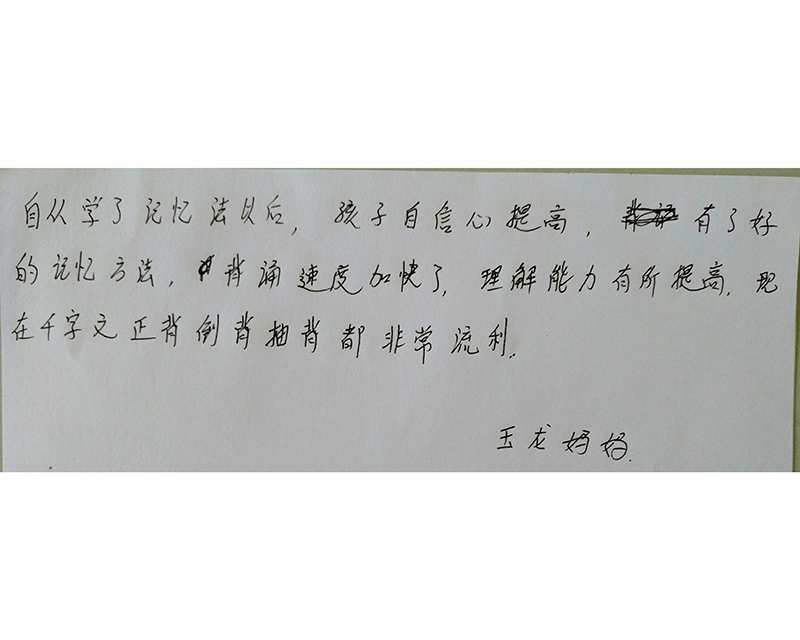 自从学了记忆法以后，孩子自信心提高，有了好
的记忆方法，背诵速度加快了，理解能力有所提高，现
在千字文正背倒背抽背都非常流利。
玉龙妈妈.